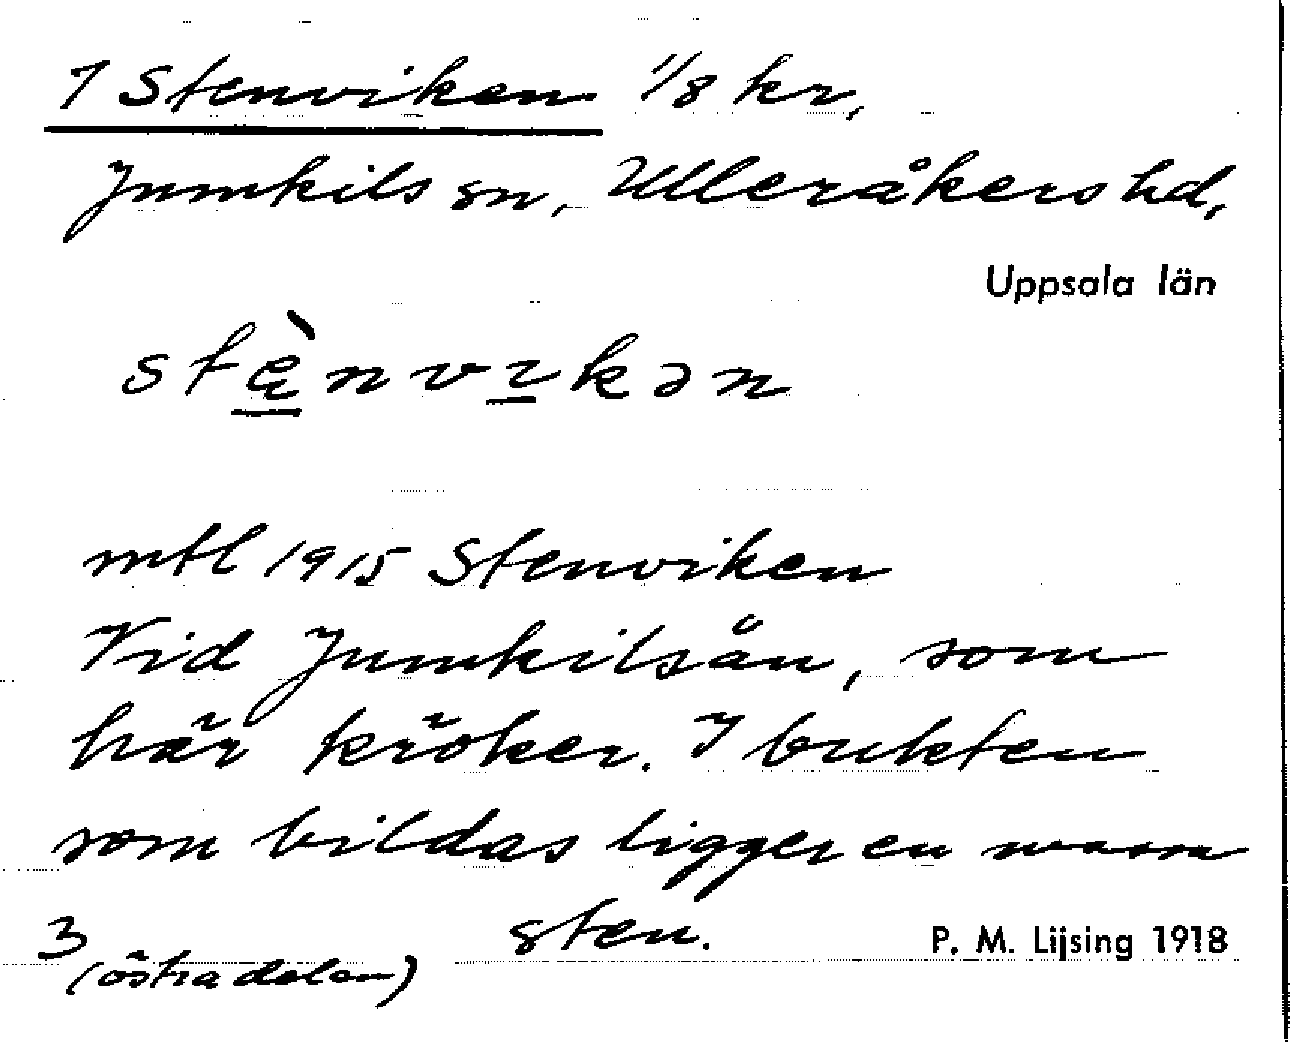 1 Stenviken 1/8 kr,
Jumkils sn, Ulleråkers hd,
Uppsala län
stę̀nvıkən
mtl 1915 Stenviken
Vid Jumkilsån, som
här kröker. I bukten
som bildas ligger en
sten.
P. M. Lijsing 1918
3
(östra delen)